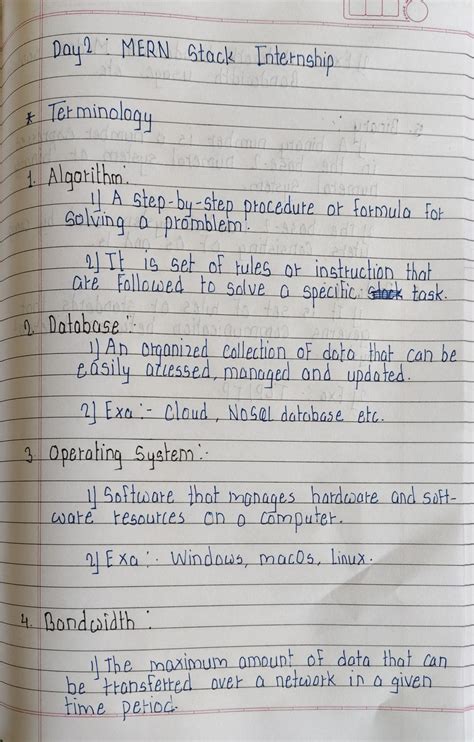 Day 2 : MERN Stack Internship
* Terminology
1. Algorithm:
1) A step-by-step procedure or formula for
solving a promblem.
2) It is set of rules or instruction that
are followed to solve a specific task.
2. Database :-
1) An organized collection of data that can be
easily accessed, managed and updated.
2) Exa :- Cloud, NoSQL database etc.
3 Operating System :-
1) Software that manages hardware and soft-
ware resources on a computer.
2) Exa :- Windows, macOs, Linux.
4. Bandwidth :
1) The maximum amount of data that can
be transferred over a network in a given
time period.